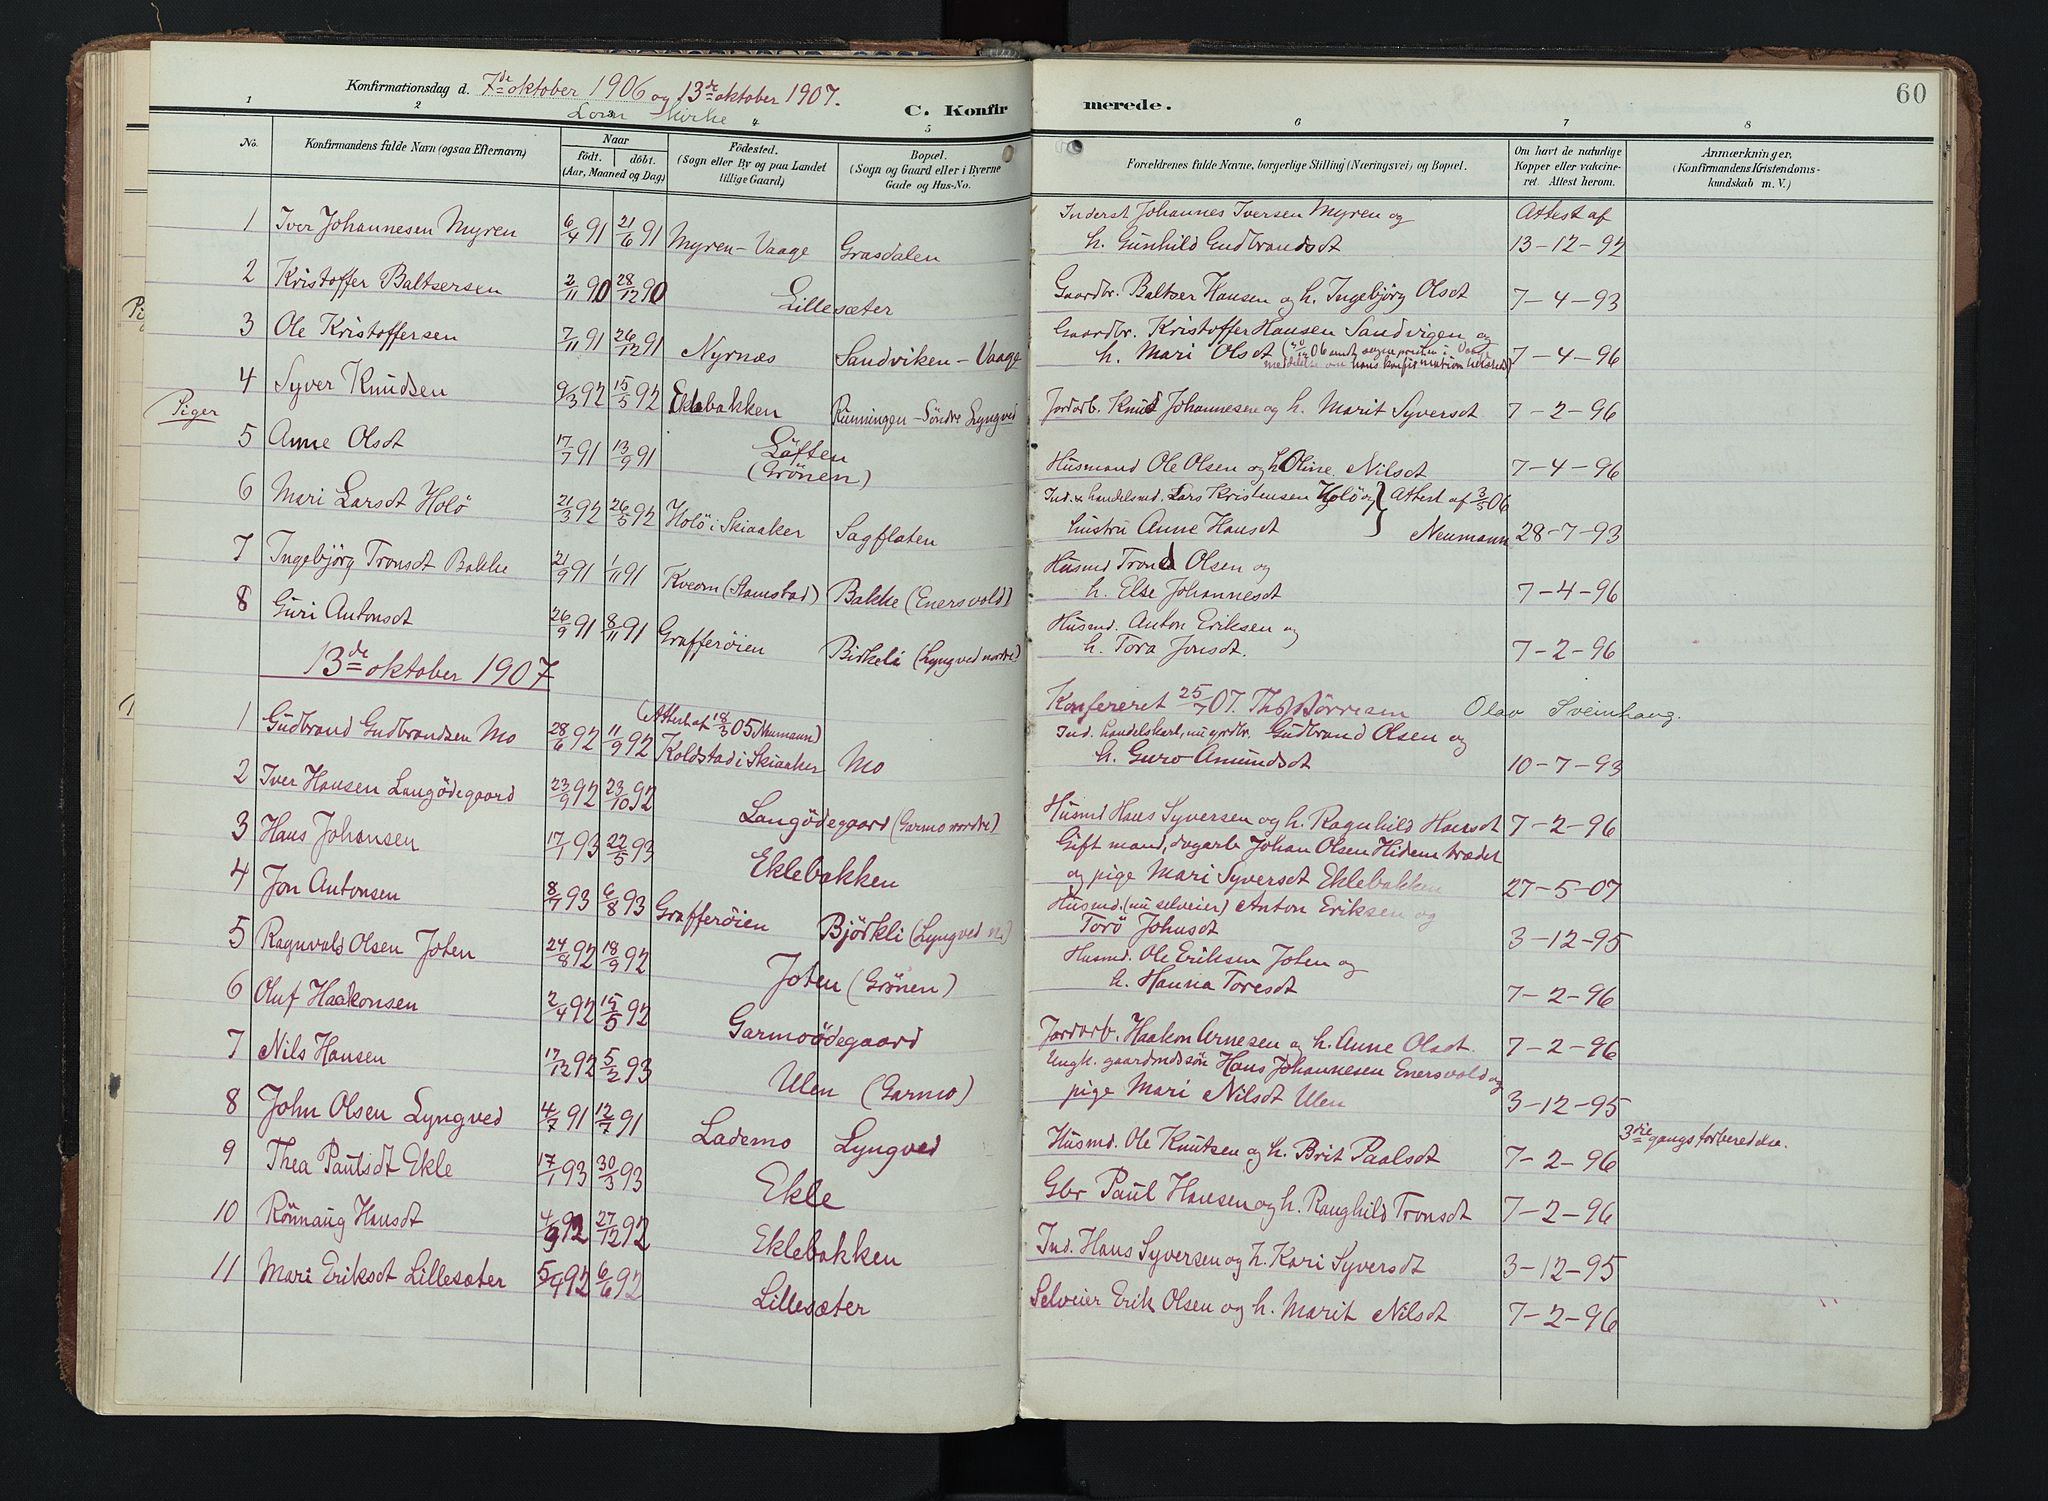 60
Konfirmationsdag d. 7de oktober 1906 og 13de oktober 1907.
Lom Kirke
C. Konfirmerede.
1 2 3 4 5 6 7 8
No. Konfirmandens fulde Navn (ogsaa Efternavn) Naar födt. döbt. (Aar, Maaned og Dag) Födested. (Sogn eller By og paa Landet tillige Gaard) Bopæl. (Sogn og Gaard eller i Byerne Gade og Hus-No. Forældrenes fulde Navne, borgerlige Stilling (Næringsvei) og Bopæl. Om havt de naturlige Kopper eller vakcineret. Attest herom. Anmærkninger, (Konfirmandens Kristendomskundskab m. V.)
1 Iver Johannesen Myren 6/4 91 21/6 91 Myren - Vaage Grasdalen Inderst Johannes Iversen Myren og h. Gunhild Gudbrandsdt Attest af 13-12-92
2 Kristoffer Baltsersen 2/11 90 28/12 90 Lillesæter Gaardbr. Baltser Hansen og h. Ingebjörg Olsdt 7-4-93
3 Ole Kristoffersen 7/11 91 26/12 91 Nyrnæs Sandviken - Vaage Gaardbr. Kristoffer Hansen Sandvigen og h. Mari Olsdt 7-4-96
4 Syver Knudsen 9/3 92 15/5 92 Eklebakken Runningen - Söndre Lyngved Jordarb. Knud Johannesen og h. Marit Syversdt 7-2-96
Piger
5 Anne Olsdt 17/7 91 13/9 91 Löften (Grönen) Husmand Ole Olsen og h. Oline Nilsdt 7-4-96
6 Mari Larsdt Holö 21/3 92 26/5 92 Holö i Skiaaker Sagflaten Ind. & handelsmd. Lars Kristensen Holö og hustru Anne Hansdt Attest af 3/5 06 Neumann 28-7-93
7 Ingebjörg Tronsdt Bakke 21/9 91 1/11 91 Kveom (Stamstad) Bakke (Enersvold) Husmd Trond Olsen og h. Else Johannesdt 7-4-96
8 Guri Antonsdt 26/9 91 8/11 91 Grafferöien Birkeli (Lyngved nordre) Husmd. Anton Eriksen og h. Tora Jonsdt. 7-2-96
13de oktober 1907
Konfereret 25/7 07. Th. Börresen Olav Sveinhaug.
1 Gudbrand Gudbrandsen Mo 28/6 92 11/9 92 (Attest af 18/3 05 Neumann) Koldstad i Skiaaker Mo Ind. handelskarl, nu grdbr. Gudbrand Olsen og h. Guro Amundsdt 10-7-93
2 Iver Hansen Langödegaard 23/9 92 23/10 92 Langödegaard (Garmo nordre) Husmd Hans Syversen og h. Ragnhild Hansdt 7-2-96
3 Hans Johansen 17/1 93 22/5 93 Eklebakken Gift mand, dagarb. Johan Olsen Hidemstrædet og pige Mari Syversdt Eklebakken 27-5-07
4 Jon Antonsen 8/7 93 6/8 93 Grafferöien Björkli (Lyngved n.) Husmd. (nu selveier) Anton Eriksen og Torö Johnsdt 3-12-95
5 Ragnvald Olsen Joten 24/8 92 18/9 92 Joten (Grönen) Husmd. Ole Eriksen Joten og h. Hanna Toresdt 7-2-96
6 Oluf Haakonsen 2/4 92 15/5 92 Garmoödegaard Jordarb. Haakon Arnesen og h. Anne Olsdt. 7-2-96
7 Nils Hansen 17/12 92 5/2 93 Ulen (Garmo) Ungk. gaardmdssön Hans Johannesen Enersvold og pige Mari Nilsdt Ulen 3-12-95
8 John Olsen Lyngved 4/7 91 12/7 91 Lademo Lyngved Husmd. Ole Knutsen og h. Brit Paalsdt 7-2-96 3die gangs forberedelse.
9 Thea Paulsdt Ekle 17/1 93 30/3 93 Ekle Gbr Paul Hansen og h. Ranghild Tronsdt 7-2-96
10 Rönnaug Hansdt 4/9 92 27/12 92 Eklebakken Ind. Hans Syversen og h. Kari Syversdt 3-12-95
11 Mari Eriksdt Lillesæter 5/4 92 6/6 92 Lillesæter Selveier Erik Olsen og h. Marit Nilsdt 7-2-96